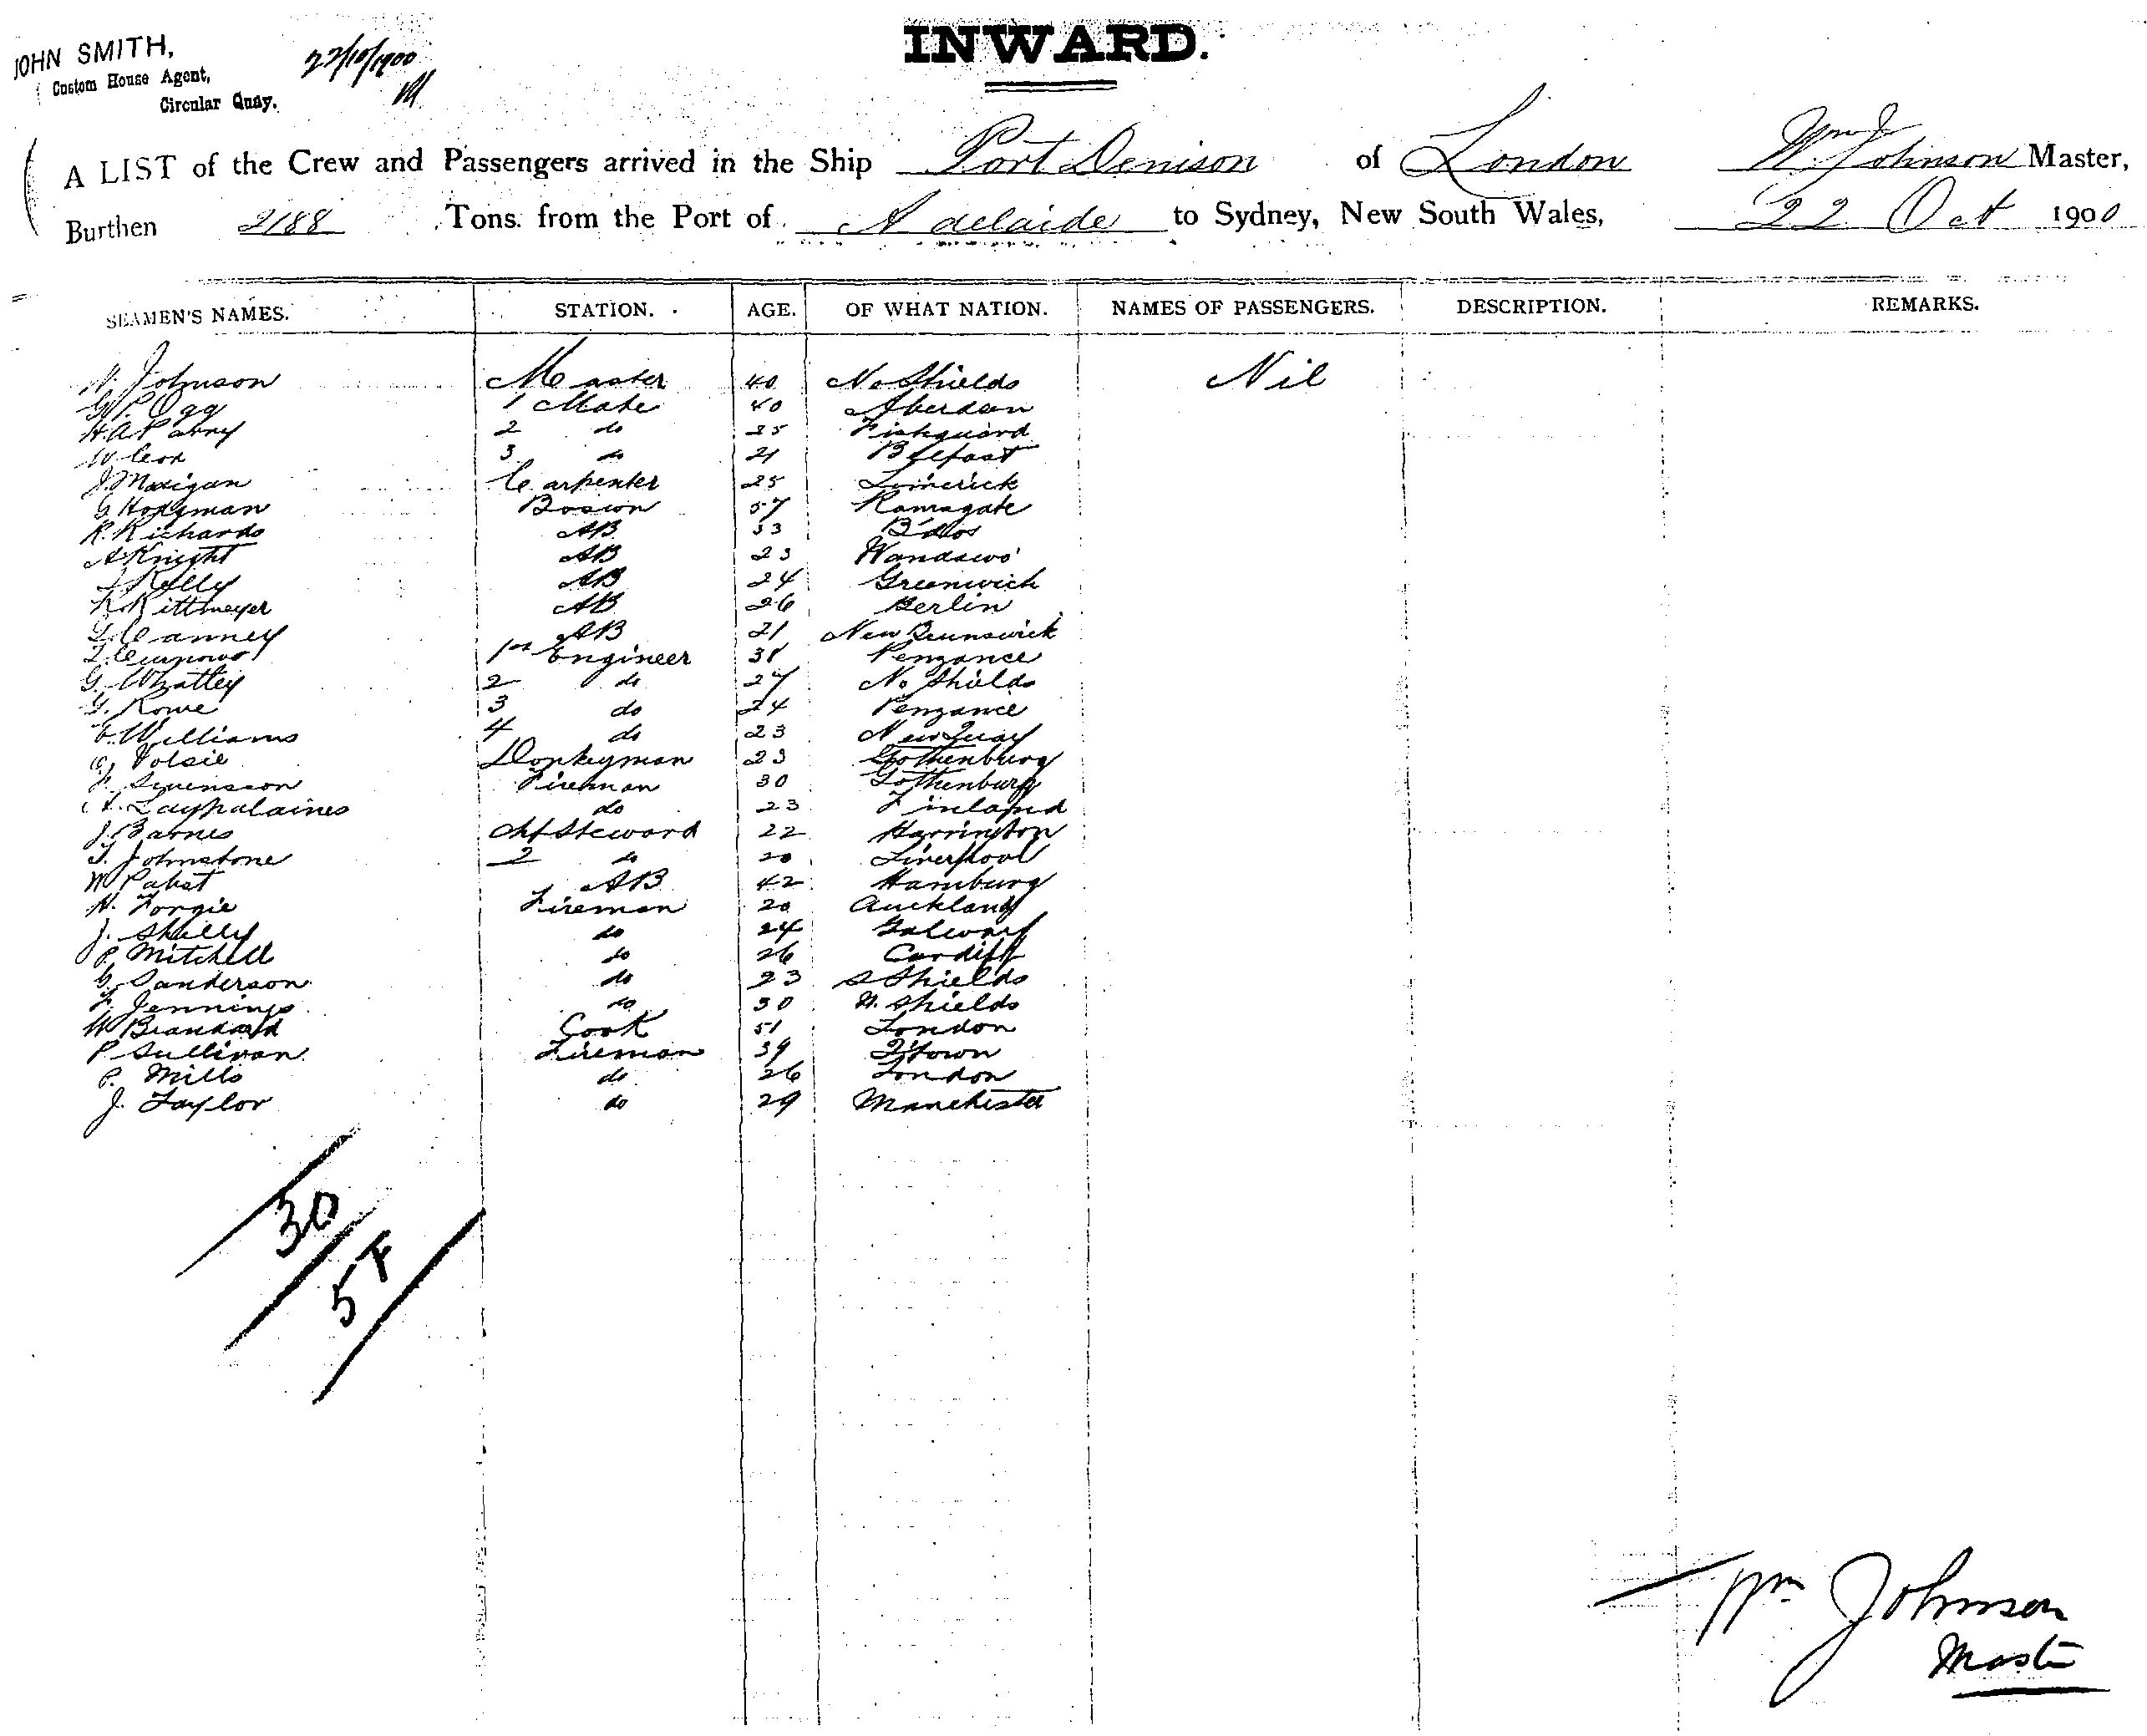 INWARD.
JOHN SMITH,
Custom House Agent,
Circular Quay.
22/10/1900
A LIST of the Crew and Passengers arrived in the Ship Port Denison of London Wm J W. Johnson Master,
Burthen 2188 Tons. from the Port of Adelaide to Sydney, New South Wales, 22 Oct 1900
SEAMEN'S NAMES. STATION. AGE. OF WHAT NATION. NAMES OF PASSENGERS. DESCRIPTION. REMARKS.
W. Johnson Master 40 No Shields Nil
G.P. Ogg 1 Mate 40 Aberdeen
H.A. Parry 2 do 25 Fishguard
W. Cox 3 do 21 Belfast
J. Madigan Carpenter 25 Limerick
G Hodgman Bosion 57 Ramsgate
R. Richards AB 33 B'dos
A Knight AB 23 Wandswo'
Kelly AB 24 Greenwich
Rittmeyer AB 26 Berlin
Canney AB 21 New Brunswick
1st Engineer 38 Penzance
G. Whatley 2 do 27 No Shields
G. Rowe 3 do 24 Penzance
E. Williams 4 do 23 New Quay
Donkeyman 23 Gothenburg
Svensson Fireman 30 Gothenburg
do 23 Finland
J. Barnes Chf Steward 22 Harrington
T. Johnstone 2 do 20 Liverpool
W Pabst AB 42 Hamburg
H. Forgie Fireman 20 Auckland
J. Skelly do 24 Galway
P. Mitchell do 26 Cardiff
G. Sanderson do 23 S Shields
F. Jennings do 30 N. Shields
W Do Cook 51 London
P Sullivan Fireman 39 Q'town
P. Mills do 26 London
J. Taylor do 29 Manchester
30
5 F
Wm Johnson
Master